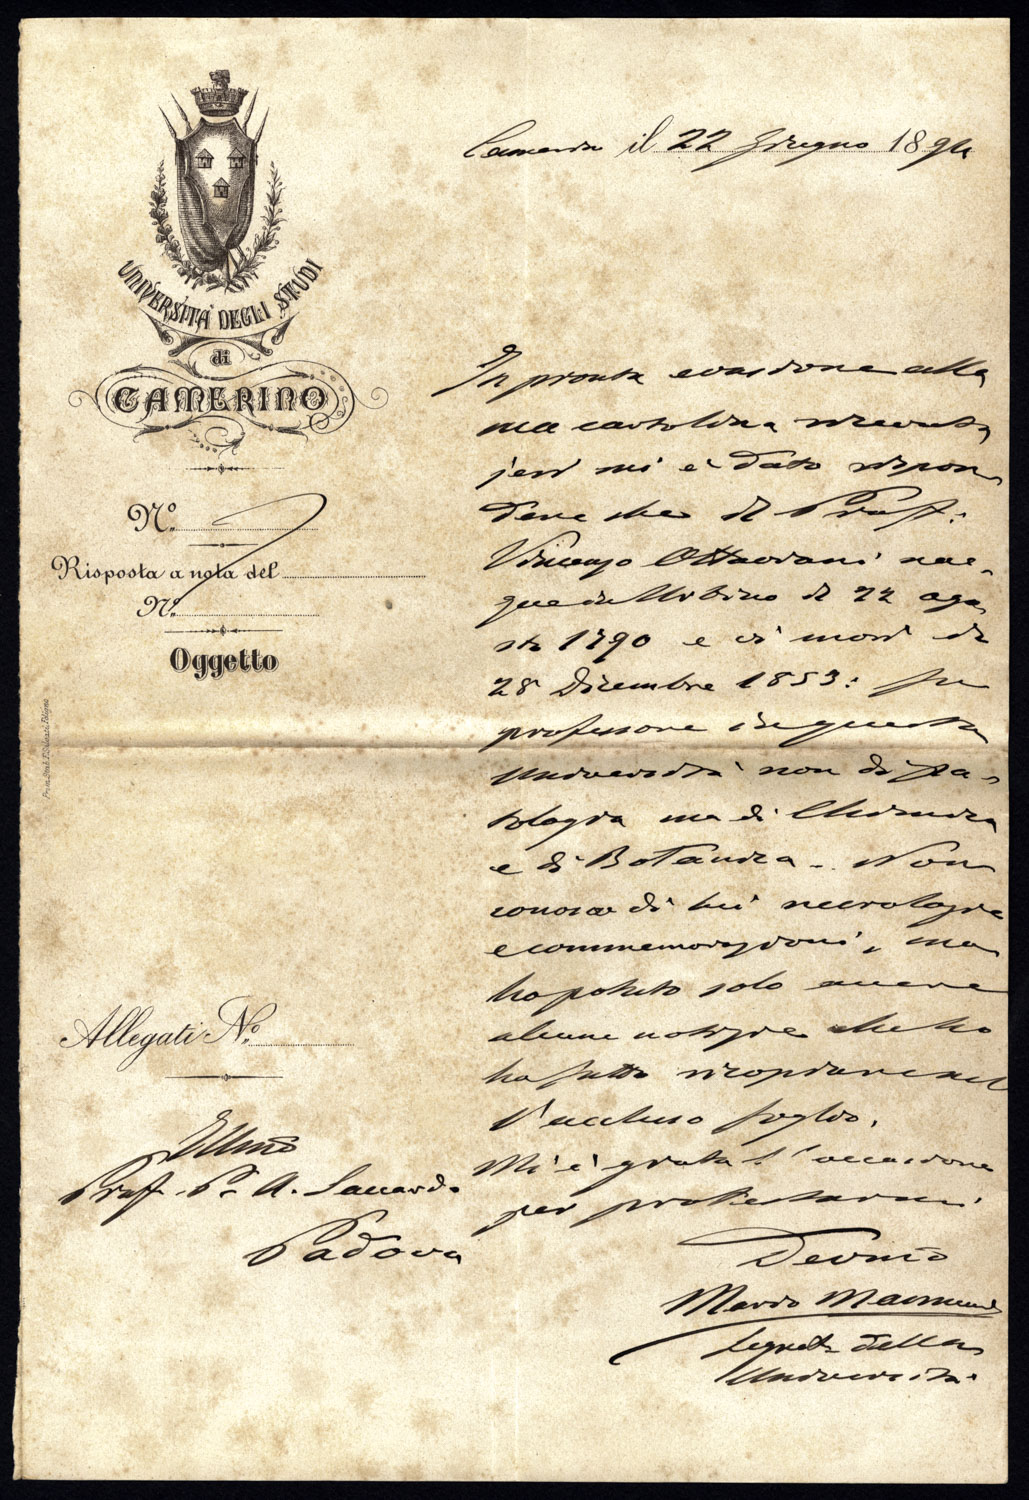 UNIVERSITÀ DEGLI STUDI
di
CAMERINO
Nº
Risposta a nota del
Nº
Oggetto
Allegati Nº
Illmo
Prof. P. A. Saccardo
Padova
Camerino il 22 Giugno 1894
In pronta evasione alla
sua cartolina ricevuta
jeri mi è dato rispon
dere che il Prof.
Vincenzo Ottaviani nac-
que in Urbino il 22 ago
sto 1790 e vi morì il
28 Dicembre 1853: fu
professore in questa
Università non di pa-
tologia ma di Chimica
e di Botanica. Non
conosco di lui necrologie
e commemorazioni, ma
ho potuto solo avere
alcune notizie che ho
ho fatto ricopiare nel
l'accluso foglio.
Mi è grata l'occasione
per protestarmi
Devmo
Mario
Segret. della
Università